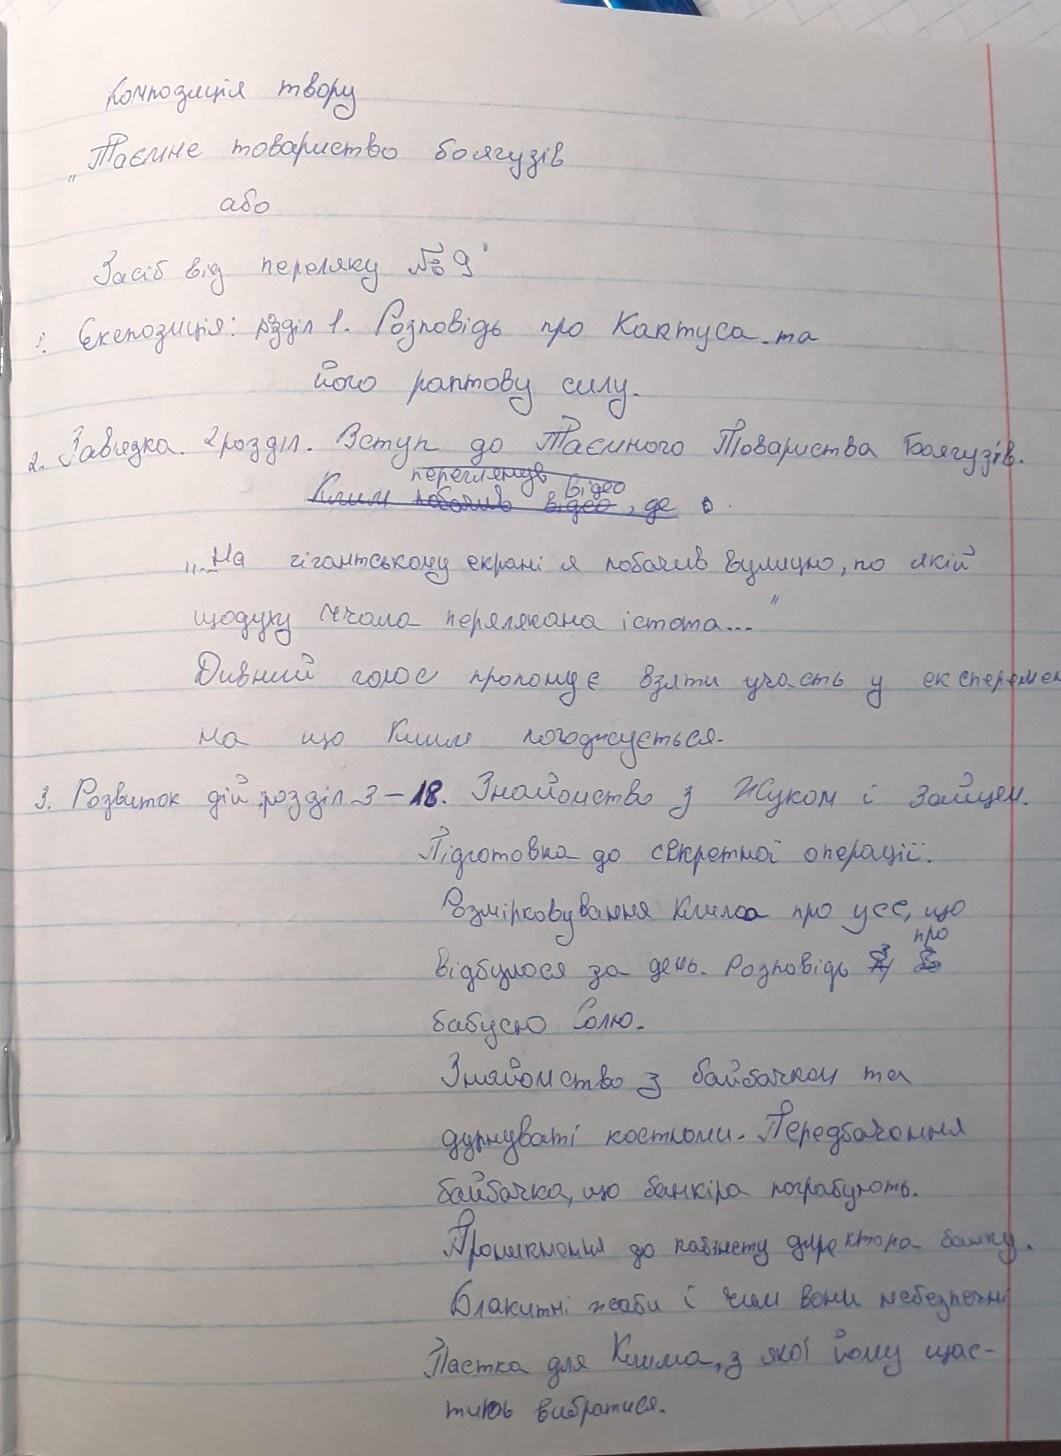 Композиція твору
„Таємне товариство боягузів
або
Засіб від переляку №9"
1. Експозиція: розділ 1. Розповідь про Кактуса та
його раптову силу.
2. Зав'язка. 2 розділ. Вступ до Таємного Товариства Боягузів.
переглянув відео
Клим побачив відео, де
„...На гігантському екрані я побачив вулицю, по якій
щодуху мчала перелякана істота..."
Дивний голос пропонує взяти участь у експеремен
на що Клим погоджується.
3. Розвиток дій розділ 3-18. Знайомство з Жуком і Зайцем.
Підготовка до секретної операції.
Розмірковування Клима про усе, що
відбулося за день. Розповідь про
бабусю Солю.
Знайомство з байбачком та
дурнуваті костюми. Передбачення
байбачка, що банкіра пограбують.
Проникнення до кабінету директора банку.
Блакитні жаби і чим вони небезпечні
Пастка для Клима, з якої йому щас-
тить вибратися.